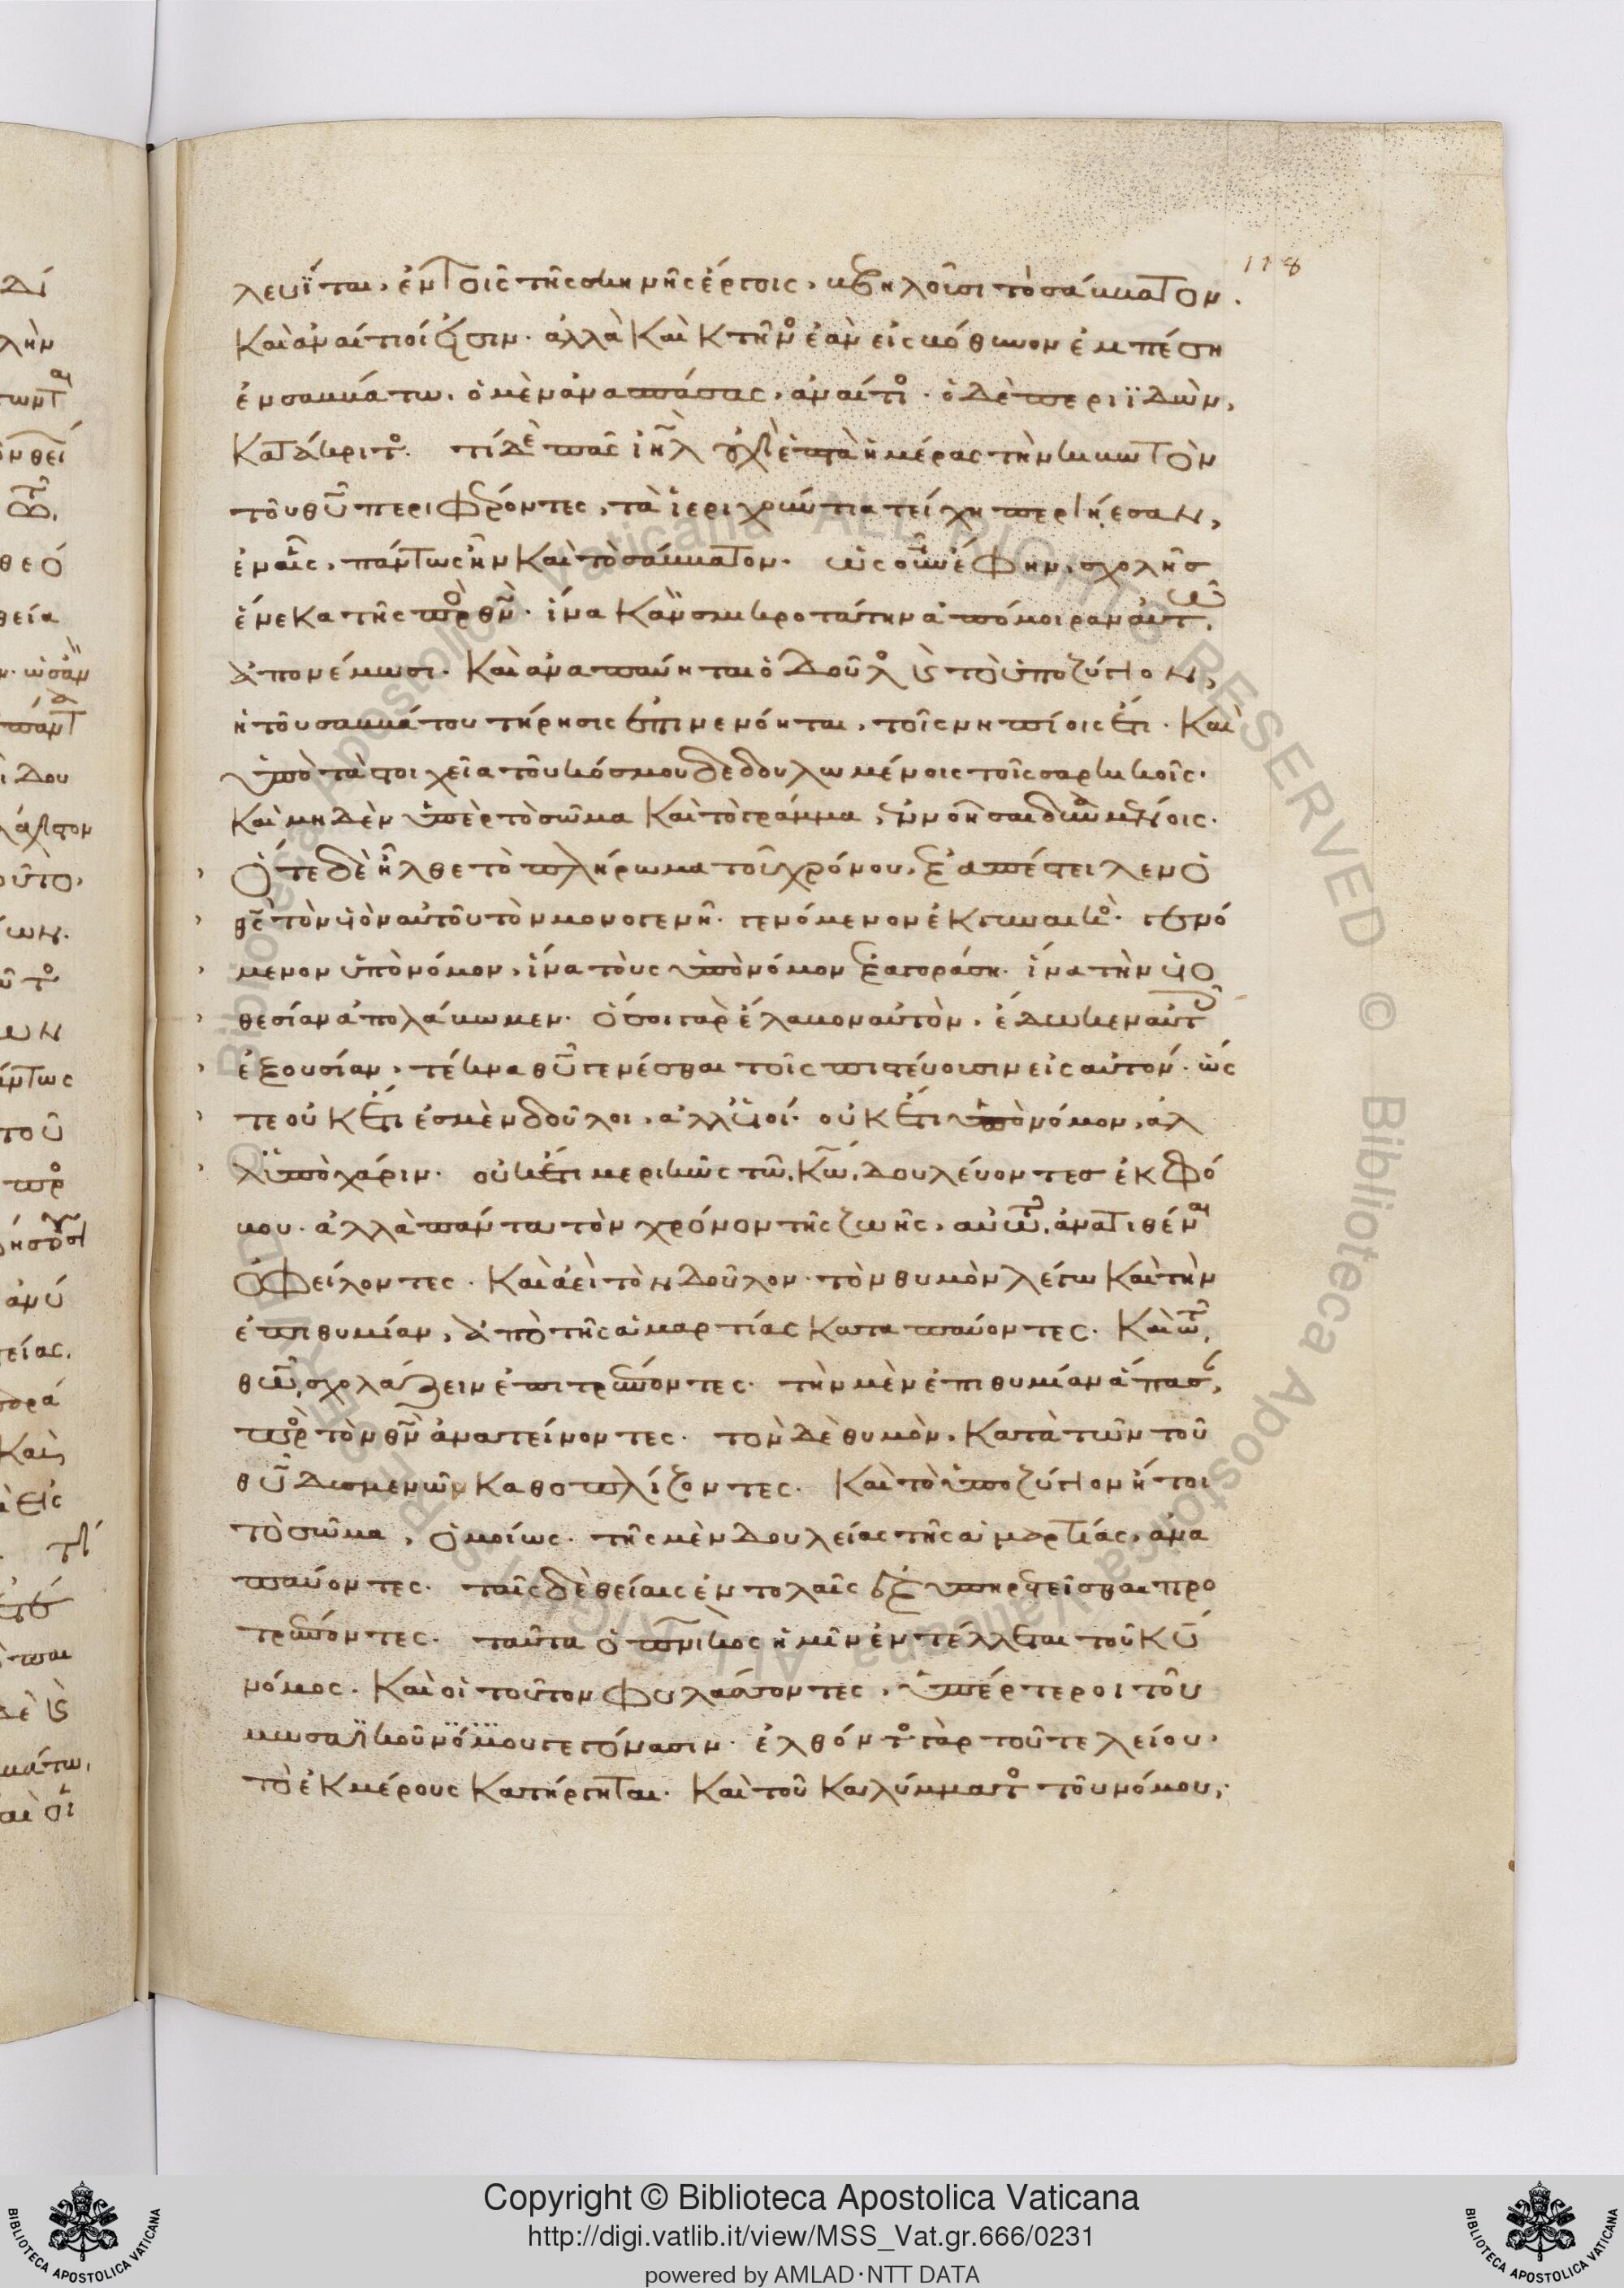 118
λευῖται, ἐν τοῖς τῆς σκηνῆς ἔργοις, βεβηλοῦσι τὸ σάββατον.
καὶ ἀναίτιοί εἰσιν. ἀλλὰ καὶ κτῆνος ἐὰν εἰς βόθυνον ἐμπέση
ἐν σαββάτω, ὁ μὲν ἀνασπάσας, ἀναίτιος. ὁ δὲ περιϊδὼν,
κατάκριτος. τί δὲ πᾶς ἰηλ οὐχὶ ἑπτὰ ἡμέρας τὴν κιβωτὸν
τοῦ θυ περιφέροντες, τὰ ἱεριχούντια τείχη περιήεσαν,
ἐν αἷς, πάντως ἦν καὶ τὸ σάββατον. ὡς οὖν ἔφην, σχολῆς
ἕνεκα τῆς πρὸς θν. ἵνα κἂν σμικροτάτην ἀπόμοιραν αὐτῶ,
ἀπονέμωσι. καὶ ἀναπαύηται ὁ δοῦλος καὶ τὸ ὑποζύγιον,
ἡ τοῦ σαββάτου τήρησις ἐπινενόηται, τοῖς νηπίοις ἔτι. καὶ
ὑπὸ τὰ στοιχεῖα τοῦ κόσμου δεδουλωμένοις τοῖς σαρκικοῖς.
καὶ μηδὲν ὑπὲρ τὸ σῶμα καὶ τὸ γράμμα, ἐννοῆσαι δυναμένοις.
Ὅτε δὲ ἦλθε τὸ πλήρωμα τοῦ χρόνου, ἐξαπέστειλεν ὁ
θς τὸν υἱὸν αὐτοῦ τὸν μονογενῆ. γενόμενον ἐκ γυναικός. γενό
μενον ὑπὸ νόμον, ἵνα τοὺς ὑπὸ νόμον ἐξαγοράση. ἵνα τὴν υἱο
θεσίαν ἀπολάβωμεν. ὅσοι γὰρ ἔλαβον αὐτὸν, ἔδωκεν αὐτοῖς
ἐξουσίαν, τέκνα θυ γενέσθαι τοῖς πιστεύουσιν εἰς αὐτόν. ὥς
τε οὐκέτι ἐσμὲν δοῦλοι, ἀλλ' υἱοί. οὐκέτι ὑπὸ νόμον, ἀλ
λ' ὑπὸ χάριν. οὐκέτι μερικῶς τῶ κω, δουλεύοντες ἐκ φό
βου. ἀλλὰ πάντα τὸν χρόνον τῆς ζωῆς, αὐτῶ, ἀνατιθέναι
ὀφείλοντες. καὶ ἀεὶ τὸν δοῦλον. τὸν θυμὸν λέγω καὶ τὴν
ἐπιθυμίαν, ἀπὸ τῆς ἁμαρτίας καταπαύοντες. καὶ τῶ,
θω, σχολάζειν ἐπιτρέποντες. τὴν μὲν ἐπιθυμίαν ἅπασαν,
πρὸς τὸν θν ἀνατείνοντες. τὸν δὲ θυμὸν, κατὰ τῶν τοῦ
θυ δυσμενῶν καθοπλίζοντες. καὶ τὸ ὑποζύγιον ἤτοι
τὸ σῶμα, ὁμοίως. τῆς μὲν δουλείας τῆς ἁμαρτίας, ἀνα
παύοντες. ταῖς δὲ θείαις ἐντολαῖς ἐξυπηρετεῖσθαι προ
τρέποντες. ταῦτα ὁ πνικὸς ἡμῖν ἐντέλλεται τοῦ κυ
νόμος. καὶ οἱ τοῦτον φυλάσσοντες, ὑπέρτεροι τοῦ
μωσαϊκοῦ νόμου γεγόνασιν. ἐλθόντος γὰρ τοῦ τελείου,
τὸ ἐκ μέρους κατήργηται. καὶ τοῦ καλύμματος τοῦ νόμου,
Copyright © Biblioteca Apostolica Vaticana
http://digi.vatlib.it/view/MSS_Vat.gr.666/0231
powered by AMLAD·NTT DATA
BIBLIOTECA APOSTOLICA VATICANA
BIBLIOTECA APOSTOLICA VATICANA